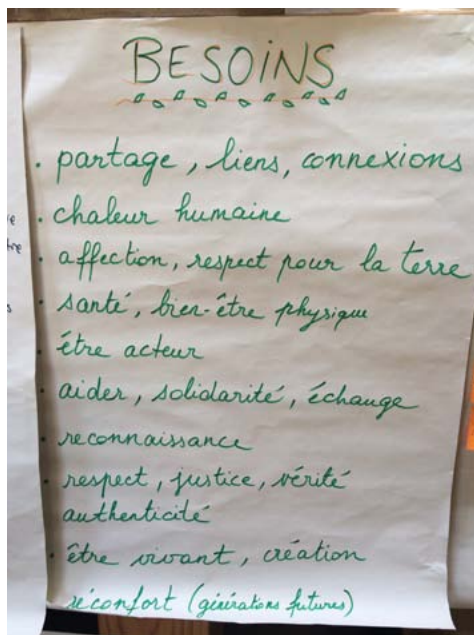 BESOINS
· partage, liens, connexions
· chaleur humaine
· affection, respect pour la terre
· santé, bien-être physique
· être acteur
· aider, solidarité, échange
· reconnaissance
· respect, justice, vérité
authenticité
· être vivant, création
· réconfort (générations futures)